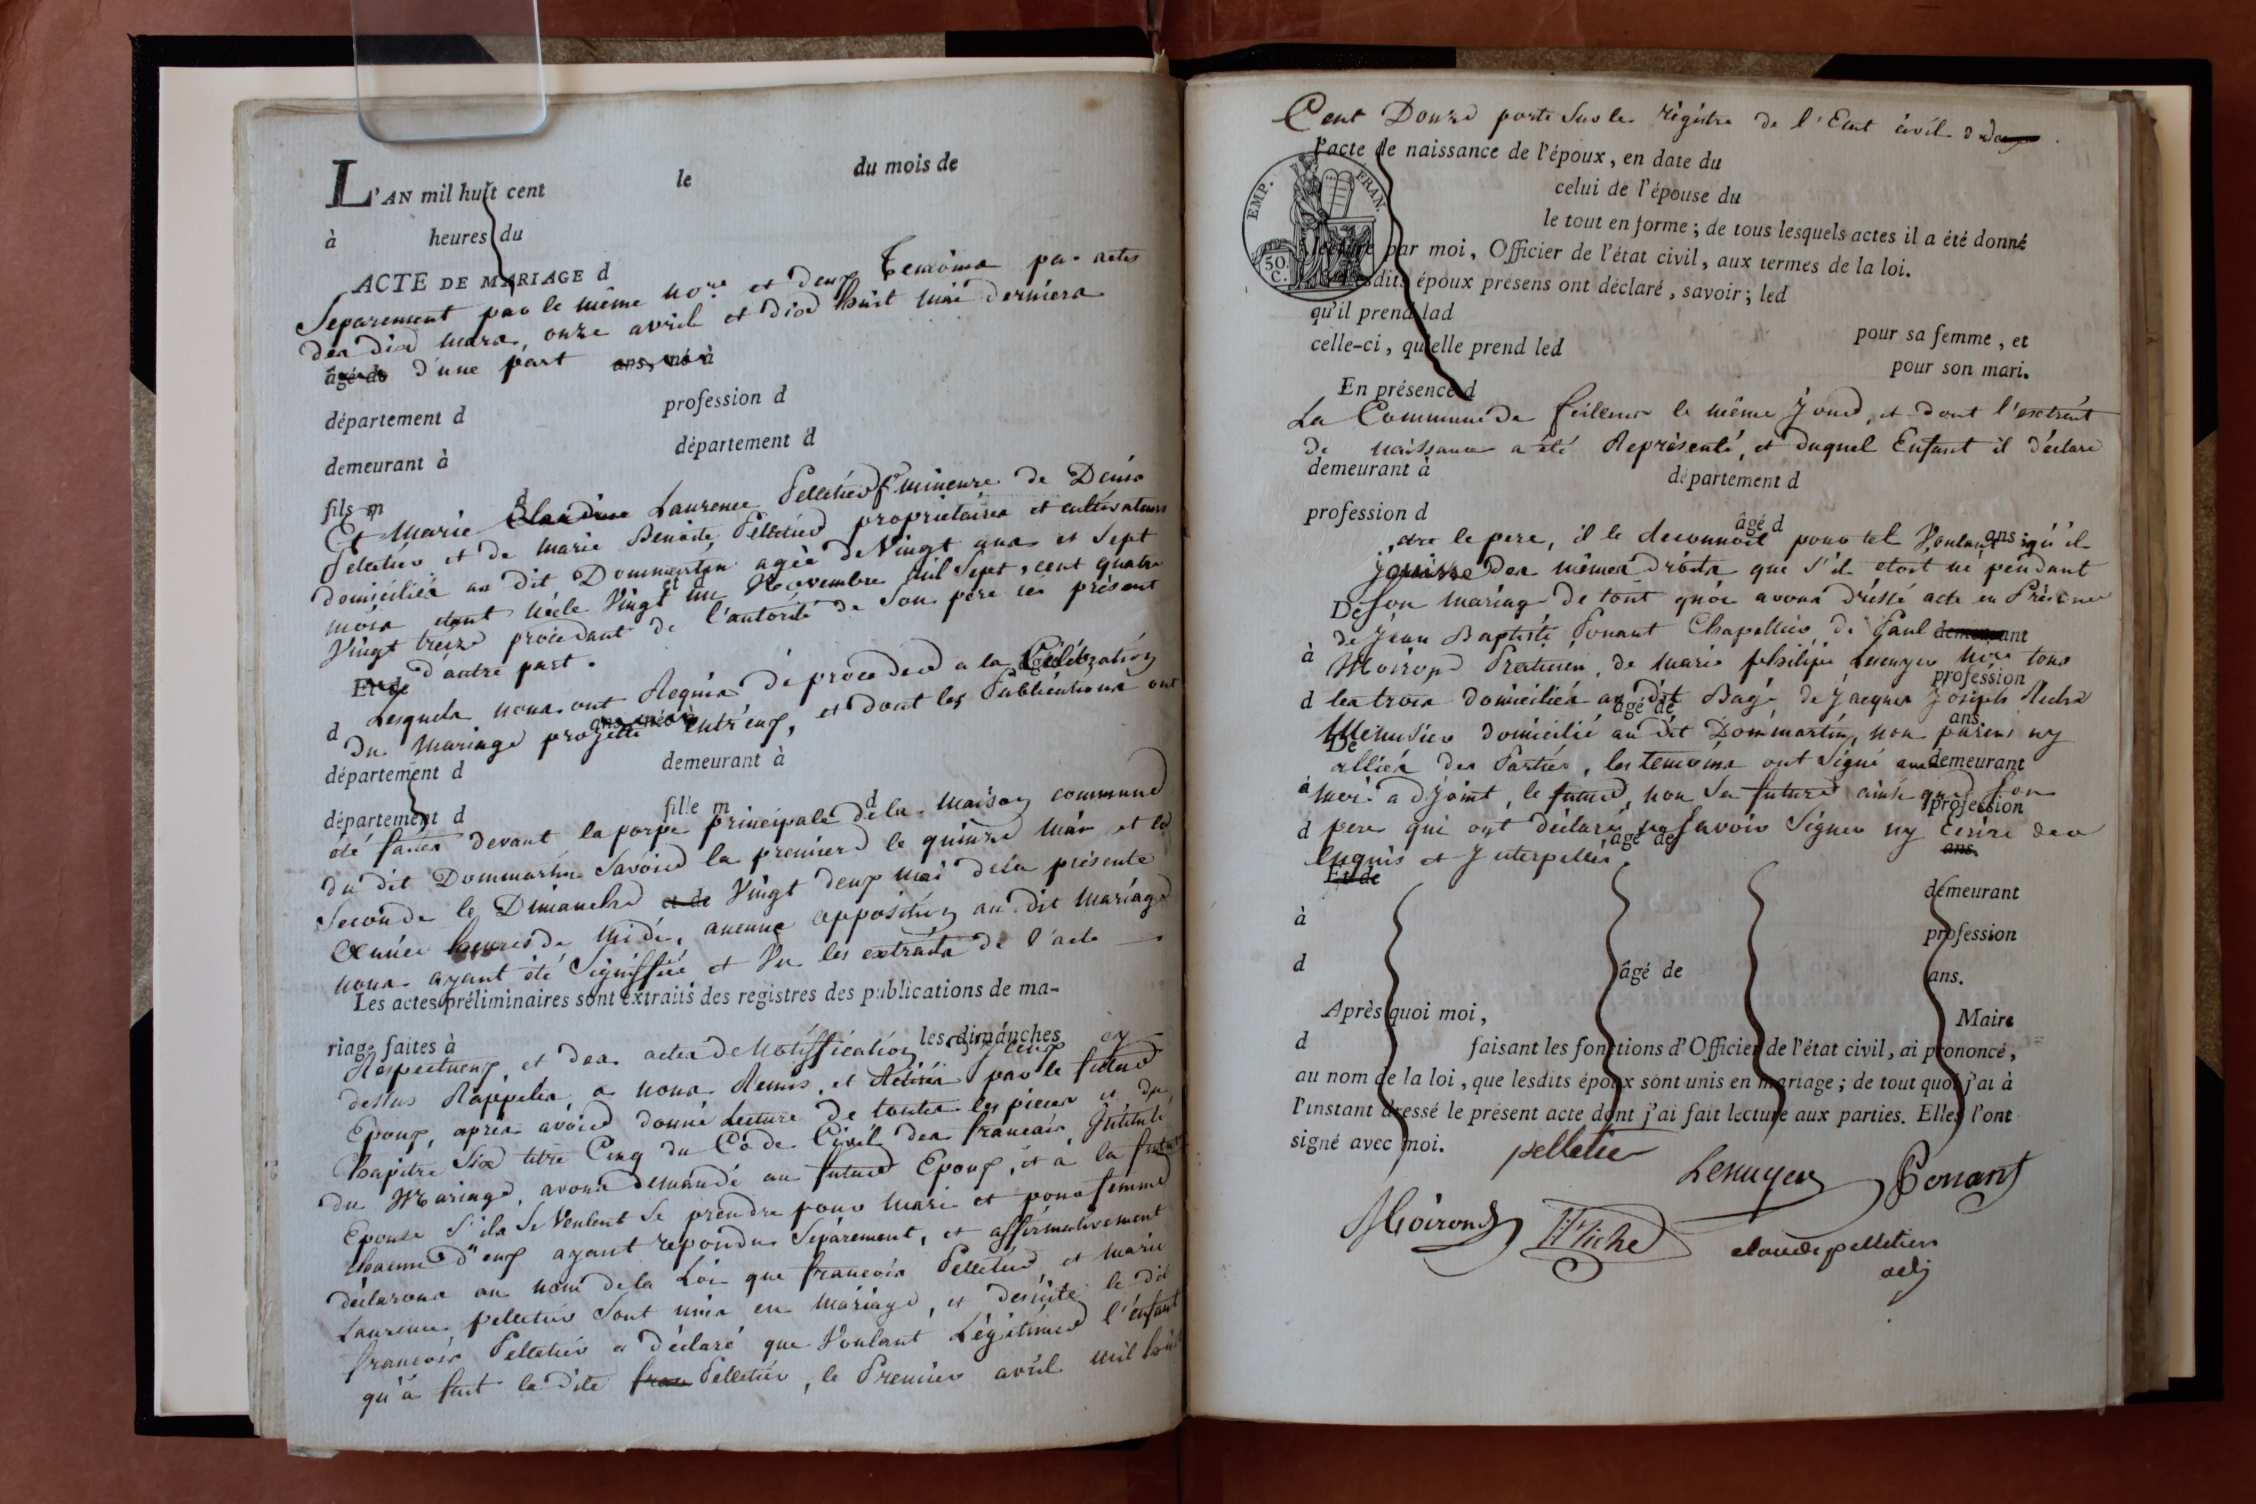 L'AN mil huit cent le du mois de
à heures du
ACTE DE MARIAGE d
Separement par le même no.re et deux temoins par actes
des dix mars, onze avril et dix huit mai derniers
âgé de d'une part ans, né à
département d profession d
demeurant à département d
fils m
Et Marie Claudine Laurence Pelletier f.e mineure de Denis
Pelletier et de Marie Benoite Pelletier proprietaires et cultivateurs
domiciliés au dit Dommartin agée de Vingt ans et Sept
mois etant née le Vingt et un Novembre mil Sept cent quatre
Vingt treize procedant de l'autorité de Son pere ici présent
Et de d'autre part.
Lesquels nous ont Requis de proceder a la Célébration
d
Du Mariage projetté entr'eux, et dont les Publications ont
ans, né à
département d demeurant à
département d fille m d
été faites devant la porte principale de la Maison commune
du dit Dommartin Savoir la premiere le quinze Mai et la
Seconde le Dimanche et de Vingt deux Mai de la présente
année heures de Midi, aucune opposition au dit Mariage
nous ayant été Signiffiée et Vu les extraits de l'acte
Les actes préliminaires sont extraits des registres des publications de ma-
riage faites à les dimanches
Respectueux, et des actes de Nottiffication d'iceux cy
dessus Rappelés, a nous Remis, et Retirés par le futur
Epoux, après avoir donné Lecture de toutes les pieces et du
Chapitre Six titre Cinq du Code Civil des francais Intitulé
du Mariage, avons demandé au futur Epoux, et a la future
Epouse S'ils Se Veulent Se prendre pour Mari et pour femme
Chacun d'eux ayant repondu Séparement, et affirmativement
déclarons au nom de la Loi que francois Pelletier et Marie
Laurence pelletier Sont unis en mariage, et desuite le dit
francois Pelletier a déclaré que Voulant Légitimer l'enfant
qu'a fait la dite fran Pelletier, le Premier avril mil huit
Cent Douze porté Sur les régistre de l'Etat civil de
l'acte de naissance de l'époux, en date du
celui de l'épouse du
EMP. FRAN.
50 C.
le tout en forme; de tous lesquels actes il a été donné
lecture par moi, Officier de l'état civil, aux termes de la loi.
Lesdits époux présens ont déclaré, savoir; led
qu'il prend lad
pour sa femme, et
celle-ci, qu'elle prend led
pour son mari.
En présence d
La Commune de feillens le même Jour, et dont l'extrait
de naissance a été Representé, et duquel Enfant il déclare
demeurant à département d
profession d
âgé d ans
etre le pere, il le reconnoit pour tel Voulant qu'il
Jouisse des mêmes droits que s'il etoit né pendant
De
Son mariage de tout quoi avons dréssé acte en Présence
de Jean Baptiste Ponant Chapellier, de Paul
demeurant
à
Moirond Praticien, de Marie philipe Lenuyer No.re tous
profession
d les trois domiciliés au dit Bagé de Jacques Joseph Riche
âgé de ans.
Menusier domicilié au dit Dommartin, non parens ny
De
alliés des Parties, les temoins ont Signé avec
demeurant
à
moi adjoint, le futur, non la future ainsi que Son
profession
d pere qui ont déclaré ne Savoir Signer ny Ecrire de ce
âgé de ans.
Enquis et Interpellés
Et de
demeurant
à
profession
d âgé de ans.
Après quoi moi, Maire
d faisant les fonctions d'Officier de l'état civil, ai prononcé,
au nom de la loi, que lesdits époux sont unis en mariage; de tout quoi j'ai à
l'instant dressé le présent acte dont j'ai fait lecture aux parties. Elles l'ont
signé avec moi.
pelletier Lenuyer Ponant
Moirond Riche claude pelletier
adj